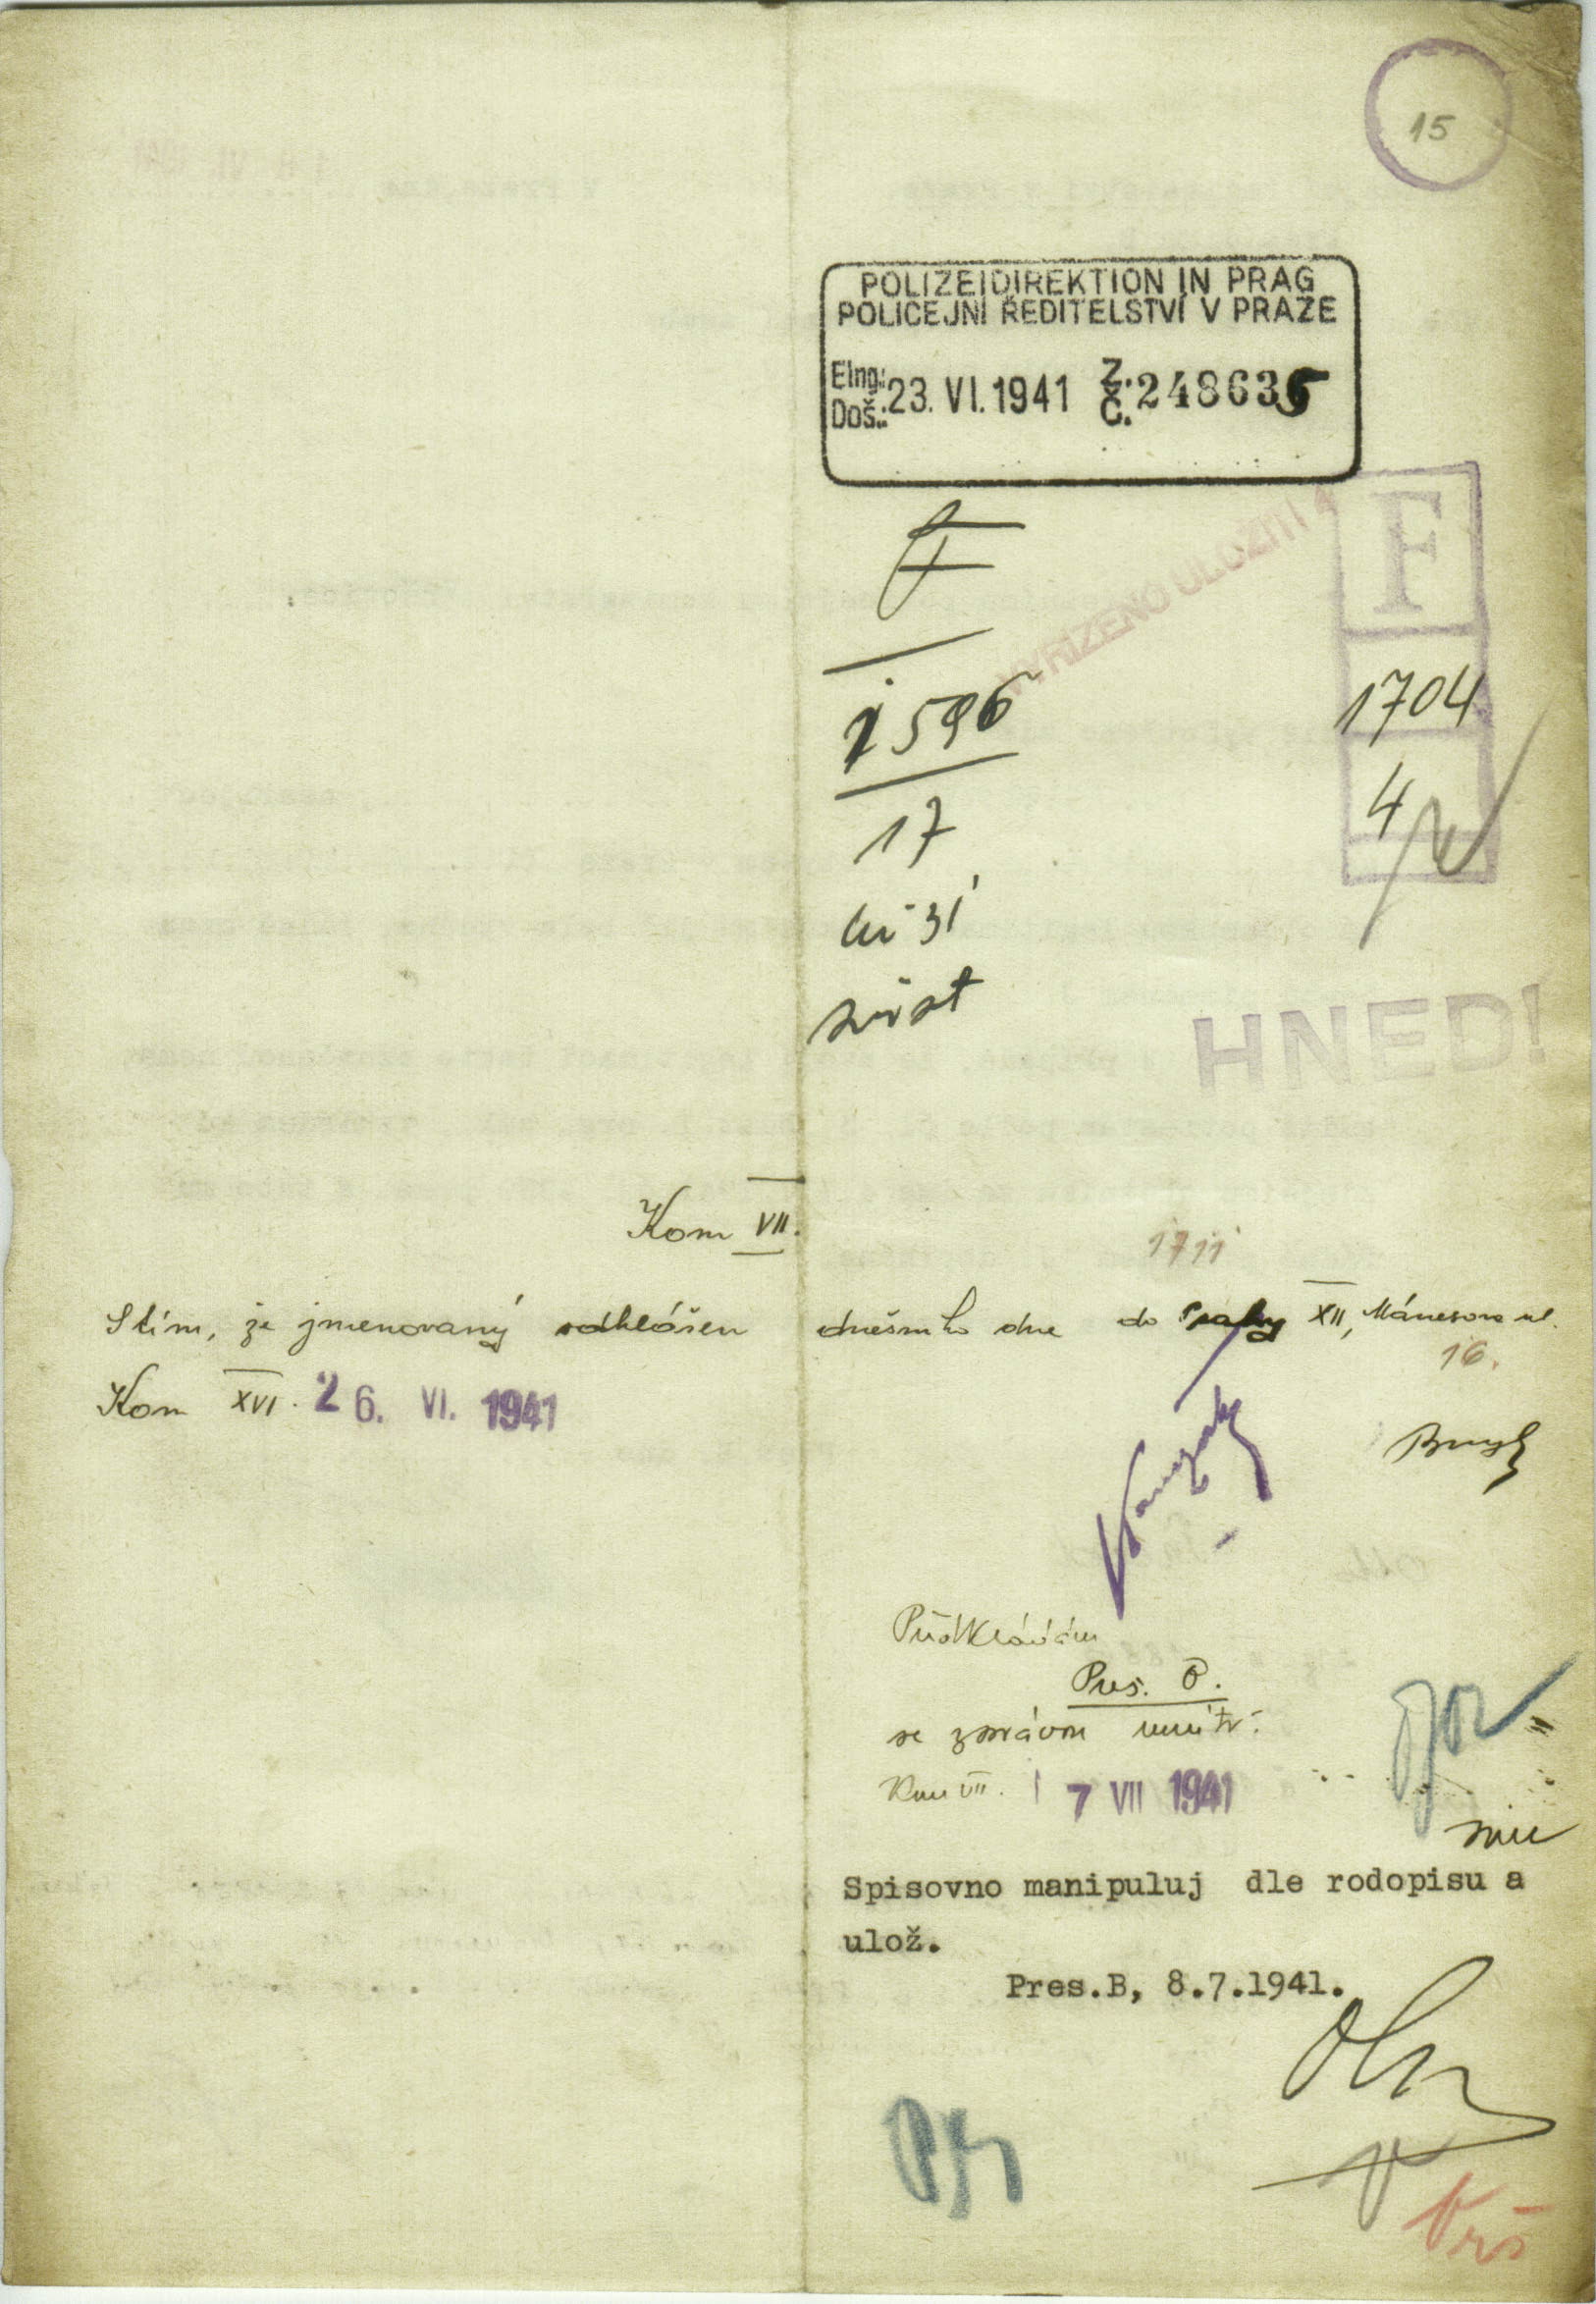 15
POLIZEIDIREKTION IN PRAG
POLICEJNÍ ŘEDITELSTVÍ V PRAZE
Eing.: Došl.: 23. VI. 1941 Z. Č. 248635
F
VYŘÍZENO ULOŽITI
1596
1704
17
4
HNED!
Kom VII.
1711
S tím, že jmenovaný odhlášen dnešního dne do Prahy XII, Mánesova ul.
16.
Kom XVI. 26. VI. 1941
Předkládám
Pres. B.
se zprávou
Kom VII. 7 VII 1941
Spisovno manipuluj dle rodopisu a
ulož.
Pres.B, 8.7.1941.